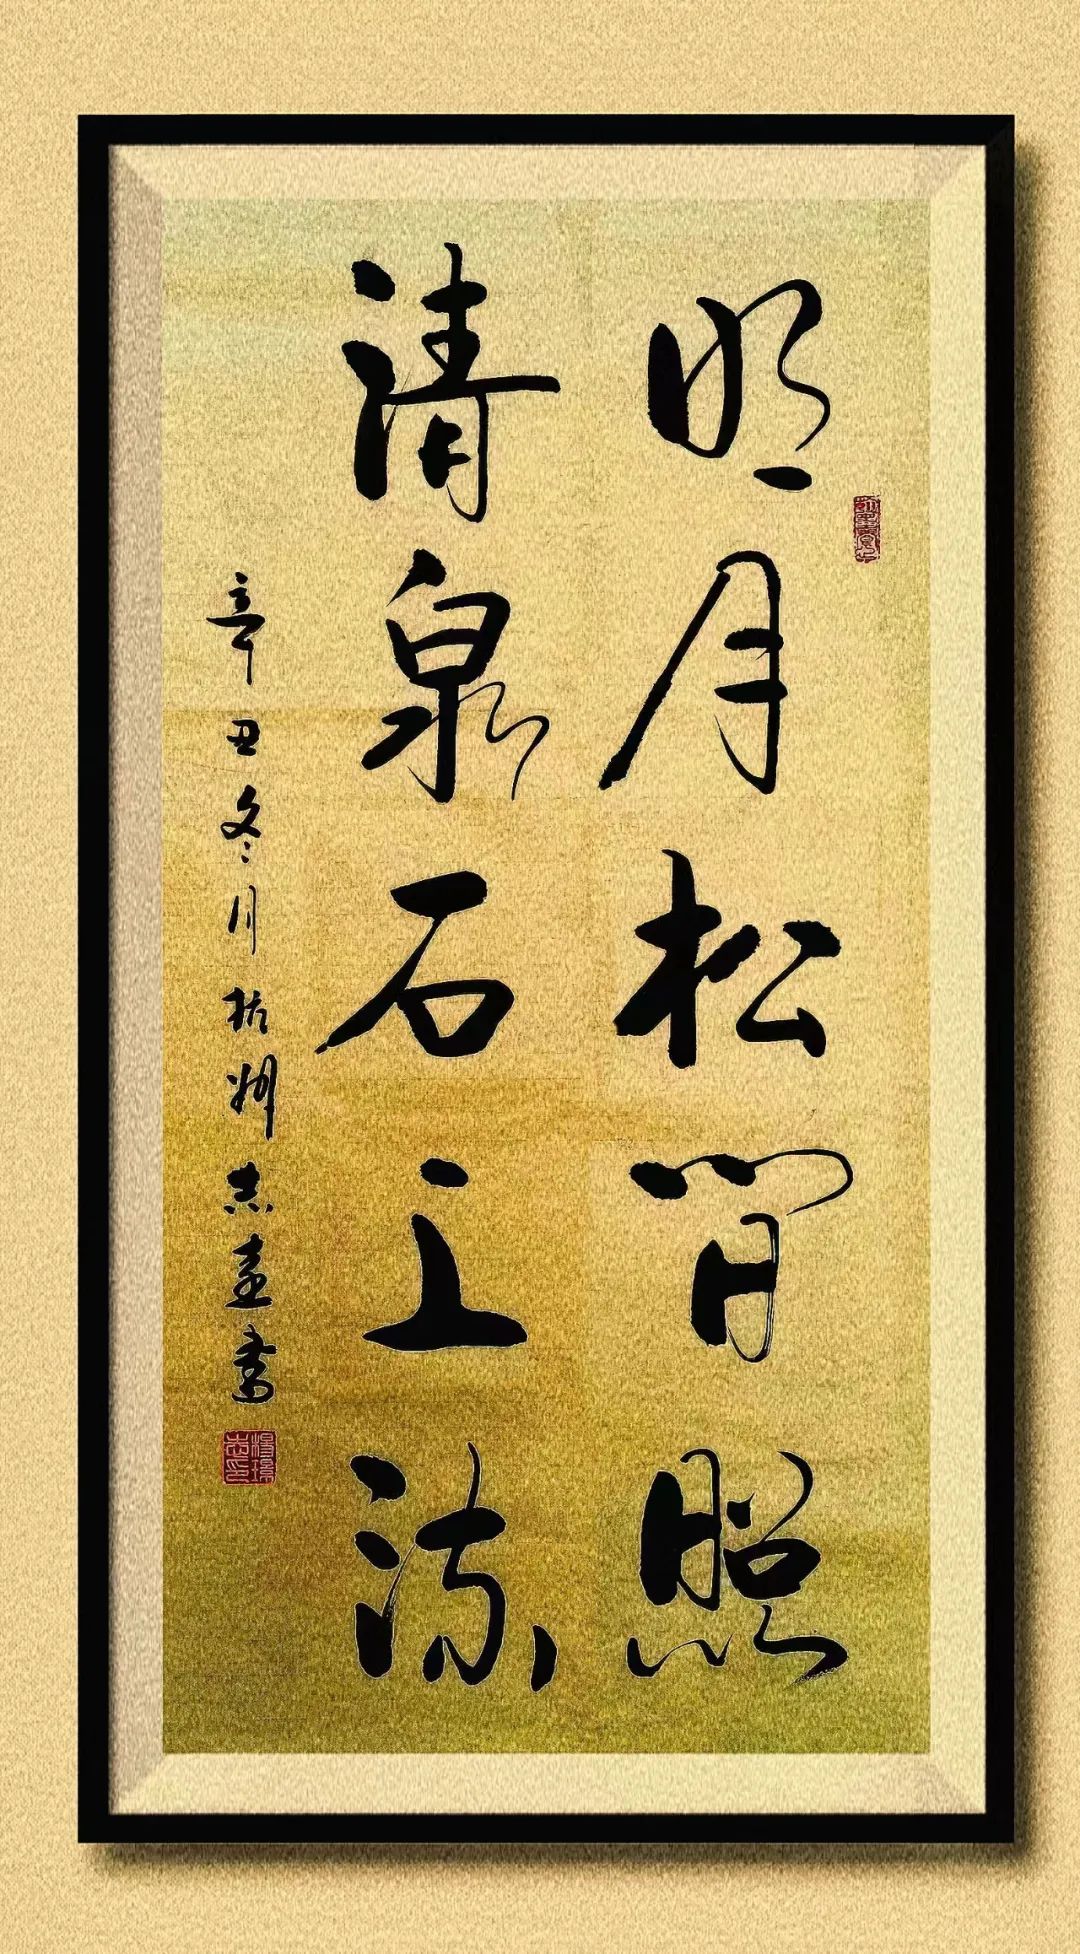 明月松间照
清泉石上流
辛丑冬月杭州志远书